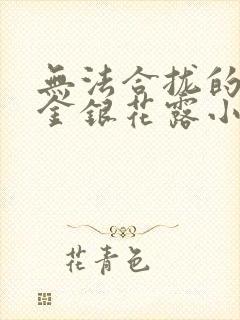 無法合拢的
金銀花露小
花青色